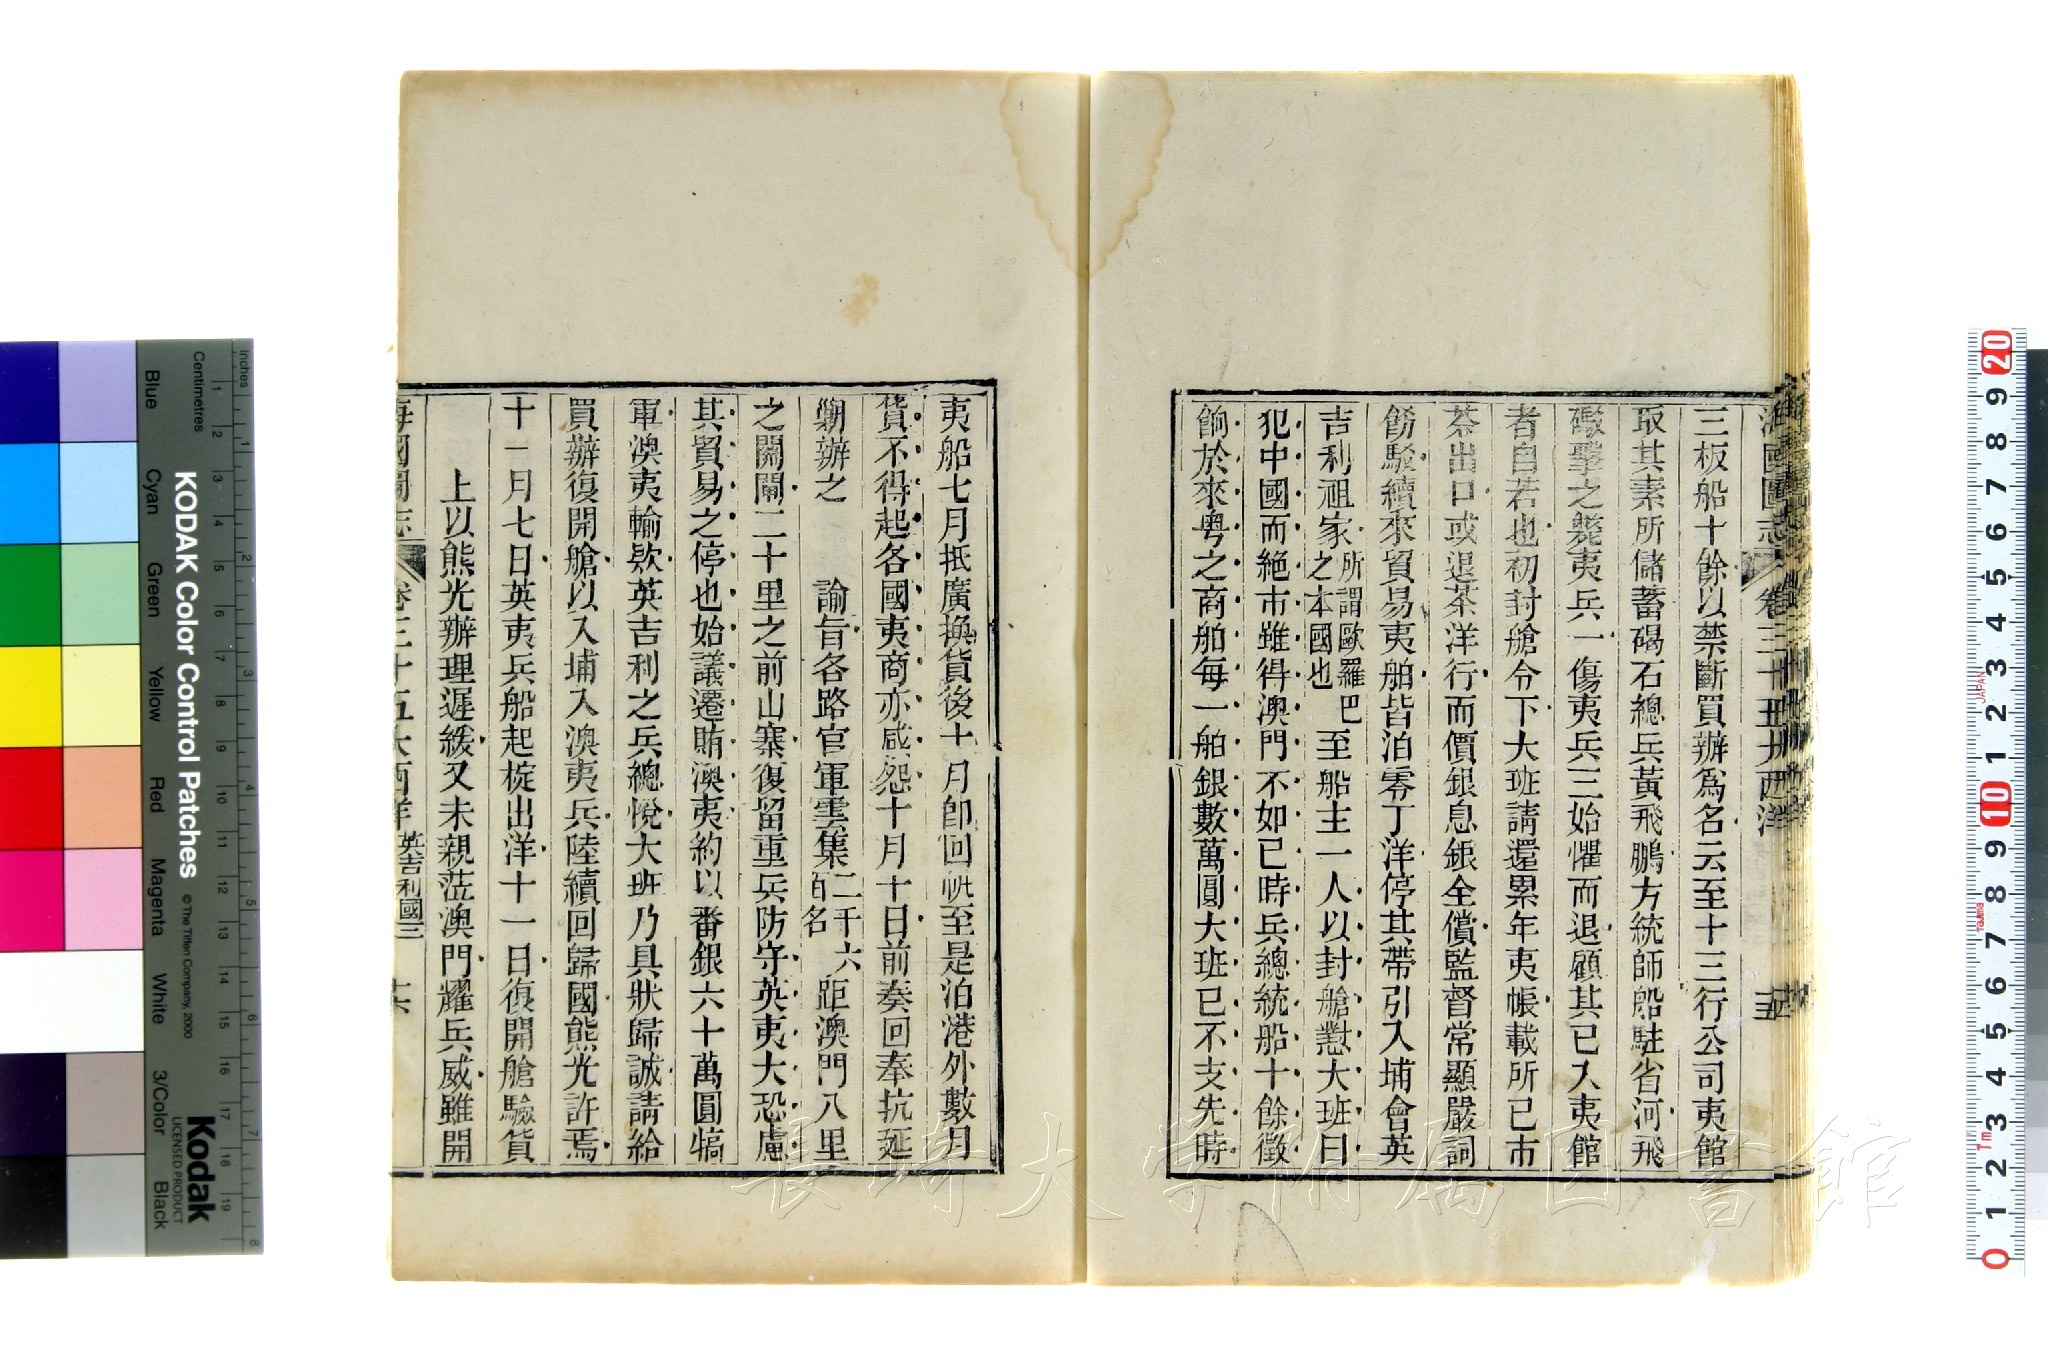 海國圖志
卷三十五大西洋
三板船十餘以禁斷買辦爲名云至十三行公司夷館
取其素所儲蓄碣石總兵黃飛鵬方統師船駐省河飛
礮擊之斃夷兵一傷夷兵三始懼而退顧其已入夷館
者自若也初封艙令下大班請還累年夷帳載所已市
茶出口或退茶洋行而價銀息銀全償監督常顯嚴詞
飭駁續來貿易夷舶皆泊零丁洋停其帶引入埔會英
吉利祖家所謂歐羅巴之本國也至船主一人以封艙懟大班曰
犯中國而絶市雖得澳門不如已時兵總統船十餘徵
餉於來粤之商舶每一舶銀數萬圓大班已不支先時
夷船七月抵廣換貨後十月卽回帆至是泊港外數月
貨不得起各國夷商亦咸怨十月十日前奏回奉抗延
勦辦之 諭旨各路官軍雲集二千六百名距澳門八里
之關閘二十里之前山寨復留重兵防守英夷大恐慮
其貿易之停也始議遷賄澳夷約以番銀六十萬圓犒
軍澳夷輸欵英吉利之兵總悅大班乃具狀歸誠請給
買辦復開艙以入埔入澳夷兵陸續回歸國熊光許焉
十一月七日英夷兵船起椗出洋十一日復開艙驗貨
上以熊光辦理遲緩又未親莅澳門耀兵威雖開
海國圖志 卷三十五大西洋 英吉利國三 十六
KODAK Color Control Patches
© The Tiffen Company, 2000
Kodak
LICENSED PRODUCT
Inches
Centimetres
Blue Cyan Green Yellow Red Magenta White 3/Color Black
JAPAN
長崎大学附属図書館